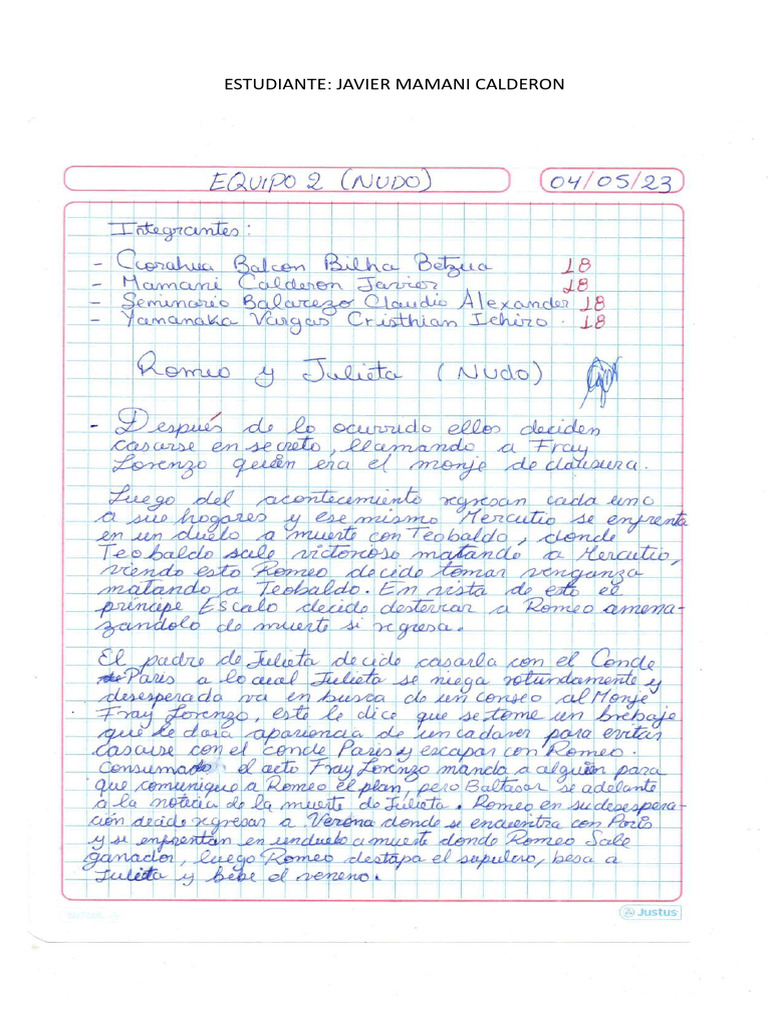 ESTUDIANTE: JAVIER MAMANI CALDERON
EQUIPO 2 (NUDO) 04/05/23
Integrantes:
- Ccorahua Balcon Bilha Betzua 18
- Mamani Calderon Javier 18
- Seminario Balarezo Claudio Alexander 18
- Yamanaka Vargas Cristhian Ichiro. 18
Romeo y Julieta (Nudo)
- Después de lo ocurrido ellos deciden
casarse en secreto, llamando a Fray
Lorenzo quien era el monje de clausura.
Luego del acontecimiento regresan cada uno
a sus hogares y ese mismo Mercutio se enfrenta
en un duelo a muerte con Teobaldo, donde
Teobaldo sale victorioso matando a Mercutio,
viendo esto Romeo decide tomar venganza
matando a Teobaldo. En vista de esto el
príncipe Escalo decide desterrar a Romeo amena-
zandolo de muerte si regresa.
El padre de Julieta decide casarla con el Conde
Paris a lo cual Julieta se niega rotundamente y
desesperada va en busca de un conseo al Monje
Fray Lorenzo, este le dice que se tome un brebaje
que le dara apariencia de un cadaver para evitar
casarse con el conde Paris y escapar con Romeo.
Consumado el acto Fray Lorenzo mando a alguien para
que comunique a Romeo el plan, pero Baltasar se adelante
a la noticia de la muerte de Julieta. Romeo en su desespera-
ción decide regresar a Verona donde se encuentra con Paris
y se enfrentan en un duelo a muerte donde Romeo Sale
ganador, luego Romeo destapa el sepulcro, besa a
Julieta y bebe el veneno.
Justus